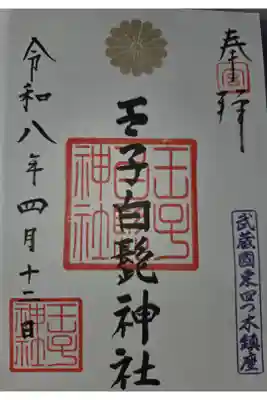 奉拝
武蔵國東四つ木鎮座
王子白髭神社
王子
神社
令和八年四月十二日
王子
神社